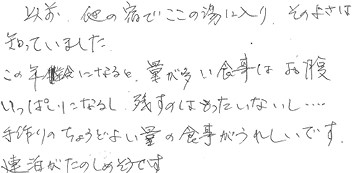 以前、他の宿でここの湯に入り、そのよさは
知っていました.
この年齢になると、量が多い食事は お腹
いっぱいになるし 残すのはもったいないし‥‥
手作りのちょうどよい量の食事がうれしいです.
連泊がたのしめそうです